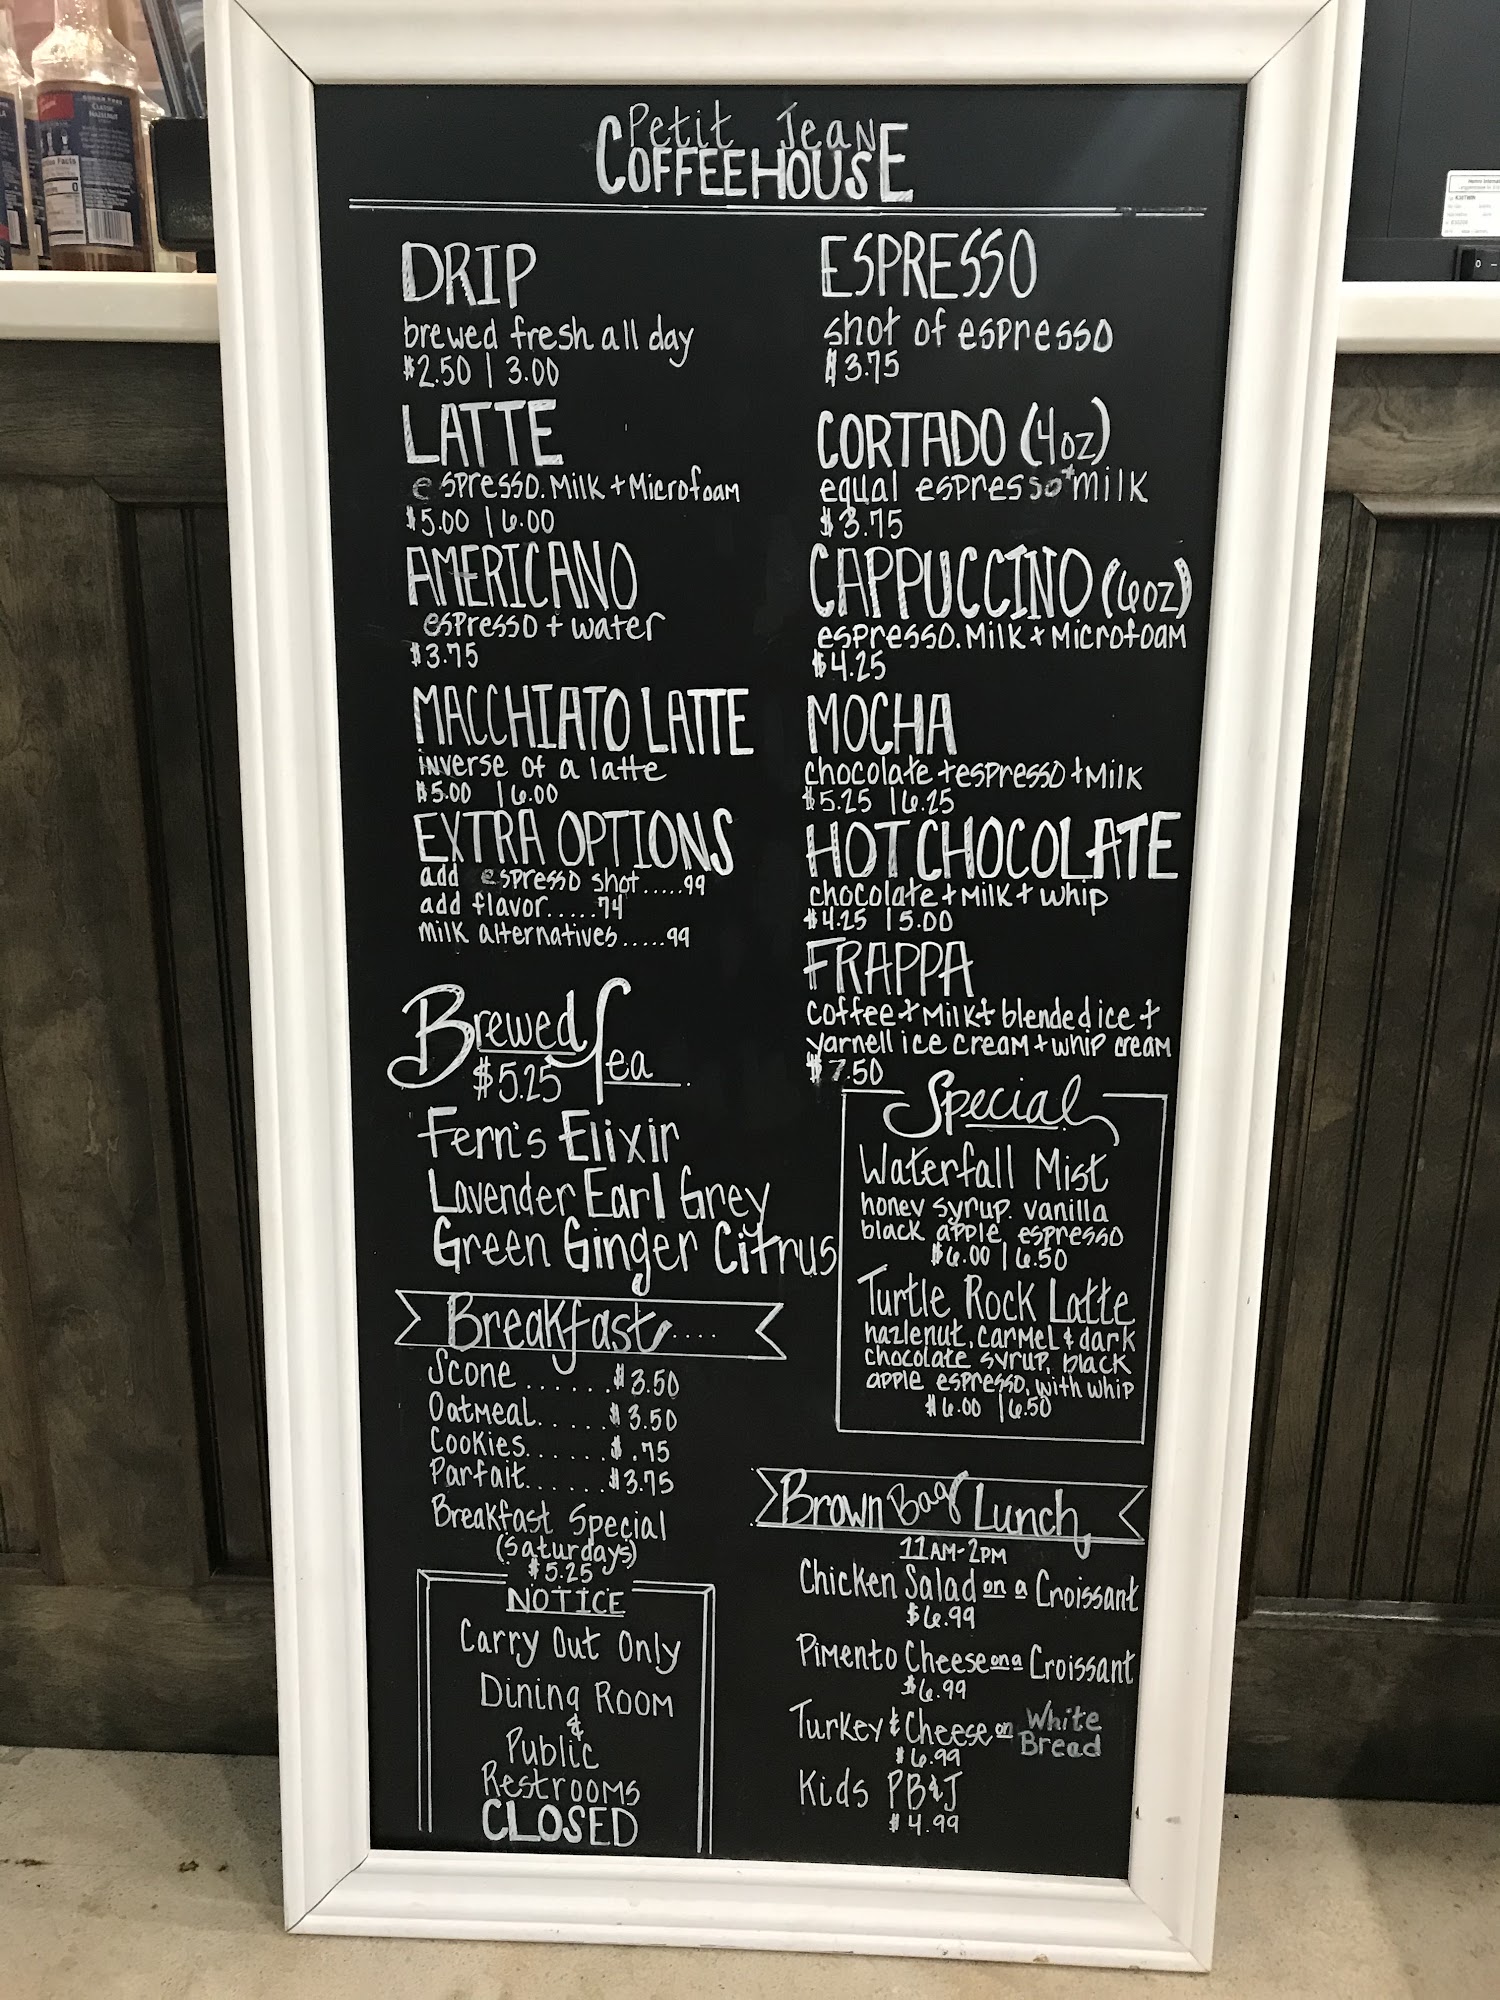 Petit Jean
COFFEEHOUSE
DRIP
brewed fresh all day
$2.50 | 3.00
LATTE
espresso. Milk + Microfoam
$5.00 | 6.00
AMERICANO
espresso + water
$3.75
MACCHIATO LATTE
inverse of a latte
$5.00 | 6.00
EXTRA OPTIONS
add espresso shot.....99
add flavor.....74
milk alternatives.....99
Brewed Tea
$5.25
Fern's Elixir
Lavender Earl Grey
Green Ginger Citrus
Breakfast....
Scone.......$3.50
Oatmeal......$3.50
Cookies.......$.75
Parfait.......$3.75
Breakfast Special
(Saturdays)
$5.25
NOTICE
Carry Out Only
Dining Room
&
Public
Restrooms
CLOSED
ESPRESSO
shot of espresso
$3.75
CORTADO (4oz)
equal espresso + milk
$3.75
CAPPUCCINO (6oz)
espresso. Milk + Microfoam
$4.25
MOCHA
chocolate + espresso + Milk
$5.25 | 6.25
HOT CHOCOLATE
chocolate + Milk + whip
$4.25 | 5.00
FRAPPA
coffee + Milk + blended ice +
yarnell ice cream + whip cream
$7.50
Special
Waterfall Mist
honey syrup. vanilla
black apple espresso
$6.00 | 6.50
Turtle Rock Latte
hazlenut, carmel & dark
chocolate syrup, black
apple espresso, with whip
$6.00 | 6.50
Brown Bag Lunch
11AM-2PM
Chicken Salad on a Croissant
$6.99
Pimento Cheese on a Croissant
$6.99
Turkey & Cheese on White Bread
$6.99
Kids PB&J
$4.99
CLASSIC
HAZELNUT